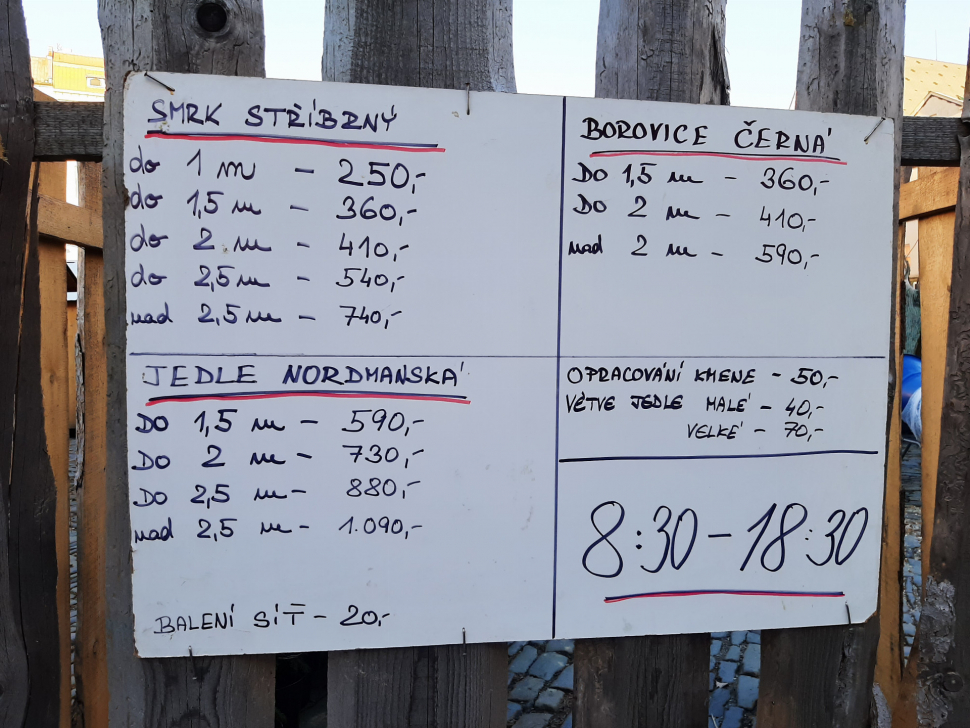 SMRK STŘÍBRNÝ
do 1 m – 250,-
do 1,5 m – 360,-
do 2 m – 410,-
do 2,5 m – 540,-
nad 2,5 m – 740,-
BOROVICE ČERNÁ
DO 1,5 m – 360,-
DO 2 m – 410,-
nad 2 m – 590,-
JEDLE NORDMANSKÁ
DO 1,5 m – 590,-
DO 2 m – 730,-
DO 2,5 m – 880,-
nad 2,5 m – 1.090,-
BALENÍ SÍŤ – 20,-
OPRACOVÁNÍ KMENE – 50,-
VĚTVE JEDLE MALÉ – 40,-
VELKÉ – 70,-
8:30 – 18:30